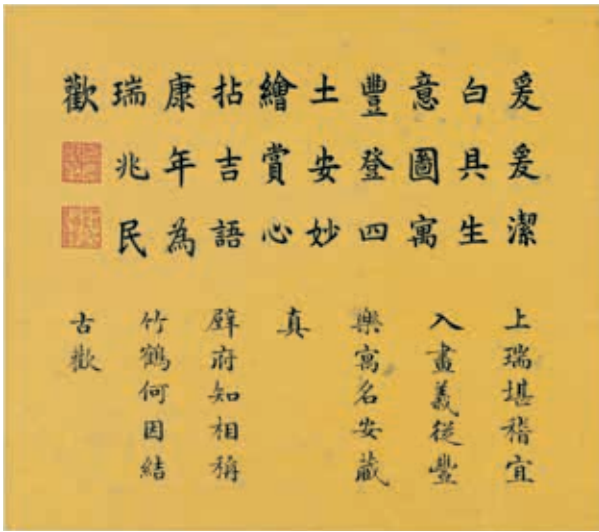 爰爰潔
白具生
意圖寓
豐登四
土安妙
繪賞心
拈吉語
康年為
瑞兆民
歡
上瑞堪稽宜
入畫義從豐
樂寓名安藏
真
府知相稱
竹鶴何因結
古歡